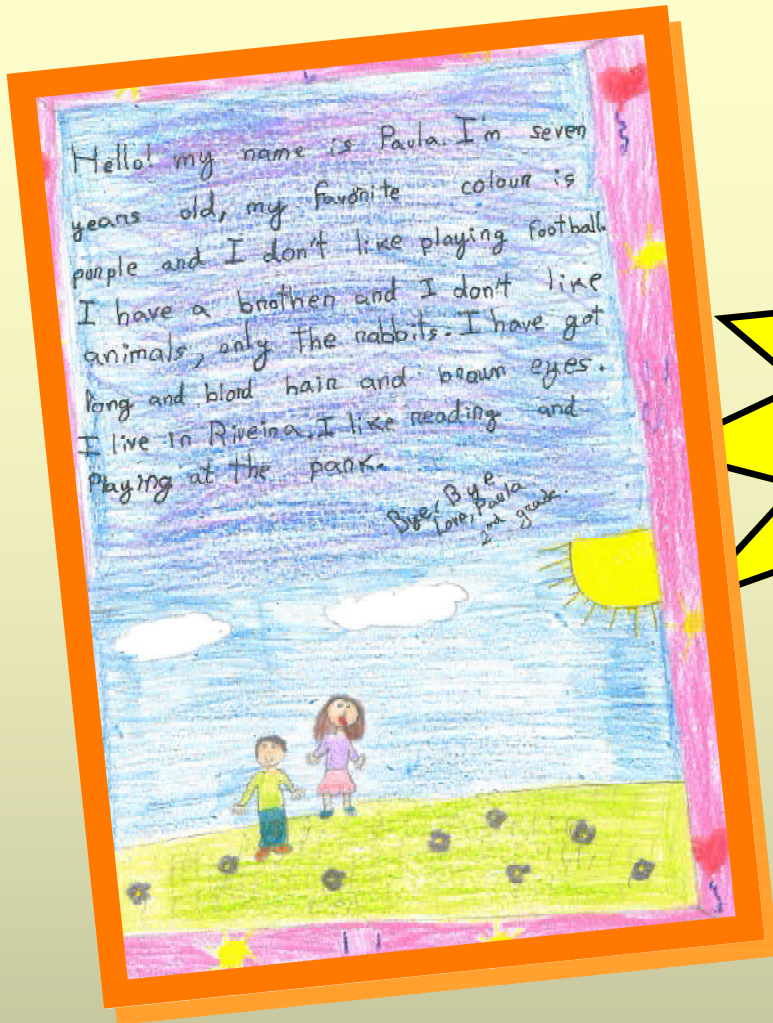 Hello! my name is Paula. I'm seven
years old, my favorite colour is
purple and I don't like playing football.
I have a brother and I don't like
animals, only the rabbits. I have got
long and blond hair and brown eyes.
I live in Riveira. I like reading and
Playing at the park.
Bye, Bye
Love, Paula
2nd grade.